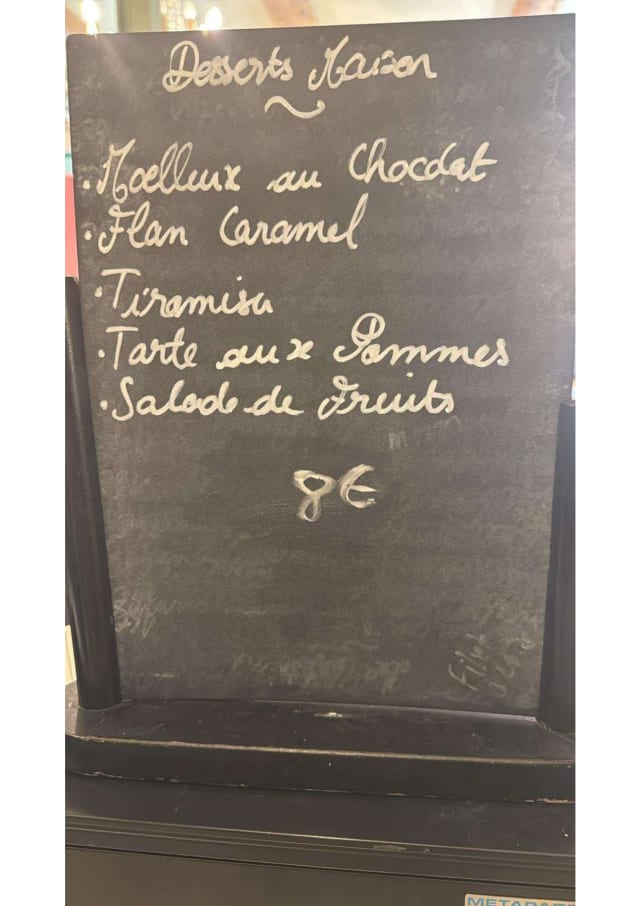 Desserts Maison
• Moelleux au Chocolat
• Flan Caramel
• Tiramisu
• Tarte aux Pommes
• Salade de Fruits
8€